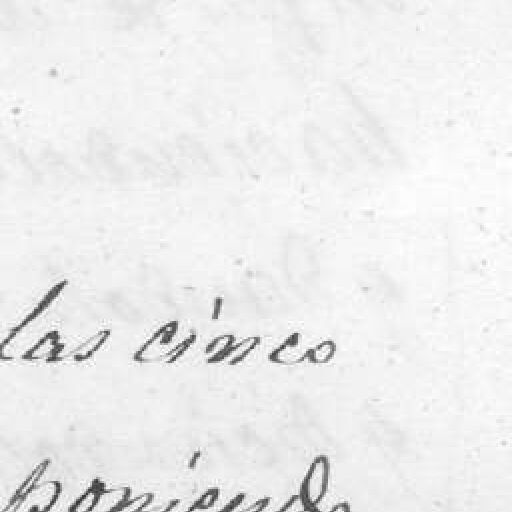 las cinco
poniendo